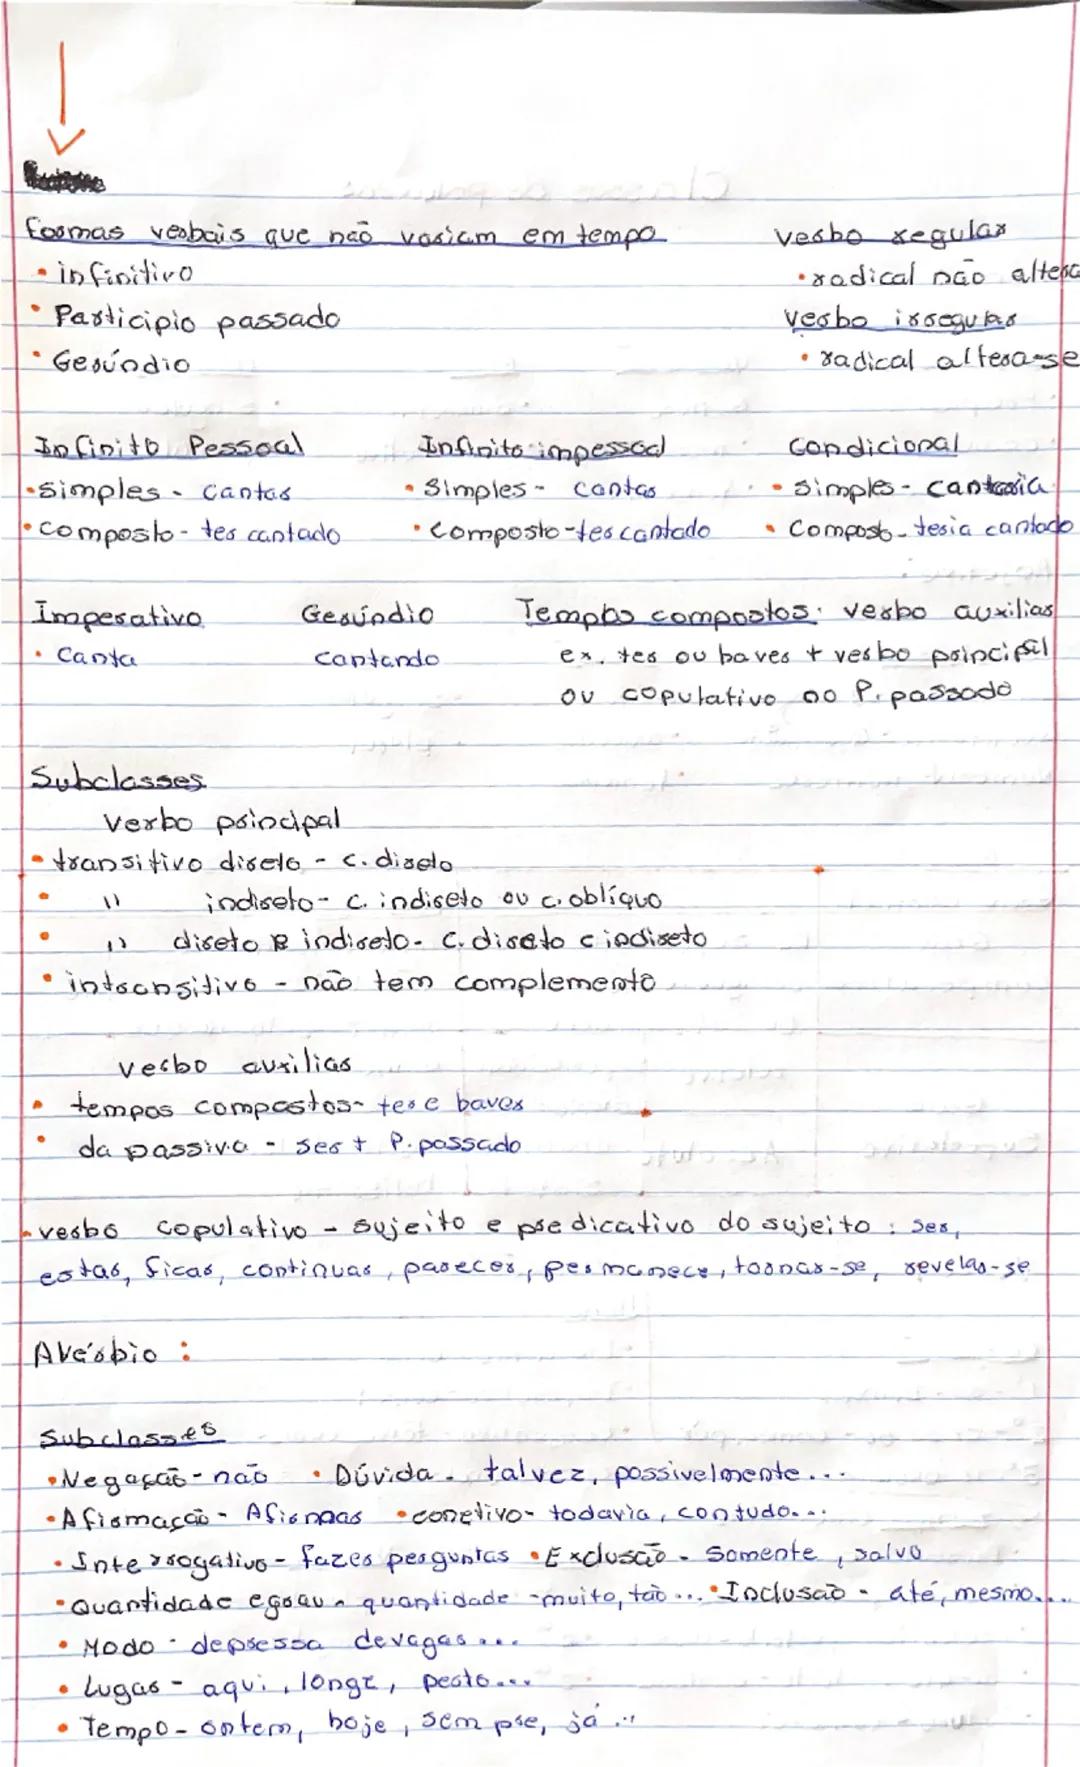 formas verbais que não variam em tempo
• infinitivo
• Participio passado
• Gerúndio
verbo regular
• radical não altera
verbo irregular
• radical altera-se
Infinito Pessoal
• simples - cantar
• composto - ter cantado
Infinito impessoal
• Simples - cantar
• Composto - ter cantado
Condicional
• simples - cantaria
• Composto - teria cantado
Imperativo
• Canta
Gerúndio
Cantando
Tempos compostos: verbo auxiliar
ex. ter ou haver + verbo principal
ou copulativo no P. passado
Subclasses
Verbo principal
• transitivo direto - c. direto
• " indireto - c. indireto ou c. oblíquo
• " direto e indireto - c. direto c indireto
• intransitivo - não tem complemento
verbo auxiliar
• tempos compostos - ter e haver
• da passiva - ser + P. passado
• verbo copulativo - sujeito e predicativo do sujeito : ser,
estar, ficar, continuar, parecer, permanece, tornar-se, revelar-se
Avérbio :
Subclasses
• Negação - não • Dúvida - talvez, possivelmente...
• Afirmação - Afirmar • conetivo - todavia, contudo...
• Interrogativo - fazer perguntas • Exclusão - Somente, salvo
• Quantidade e grau - quantidade - muito, tão ... • Inclusão - até, mesmo....
• Modo - depressa devagar ...
• Lugar - aqui, longe, perto....
• Tempo - ontem, hoje, sempre, já ...